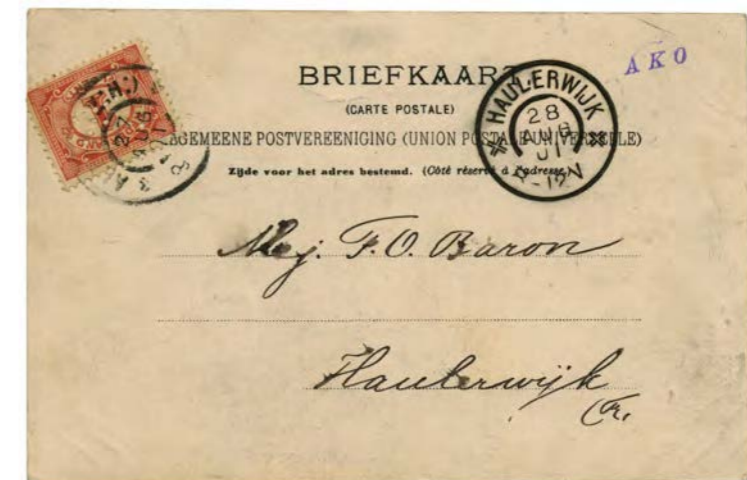 AKO
BRIEFKAART
(CARTE POSTALE)
ALGEMEENE POSTVEREENIGING (UNION POSTALE UNIVERSELLE)
Zijde voor het adres bestemd. (Côté réservé à l'adresse.)
HAULERWIJK
28
AUG
01
8-12V
27
AUG
Mej. F. O. Baron
Haulerwijk
(Fr.